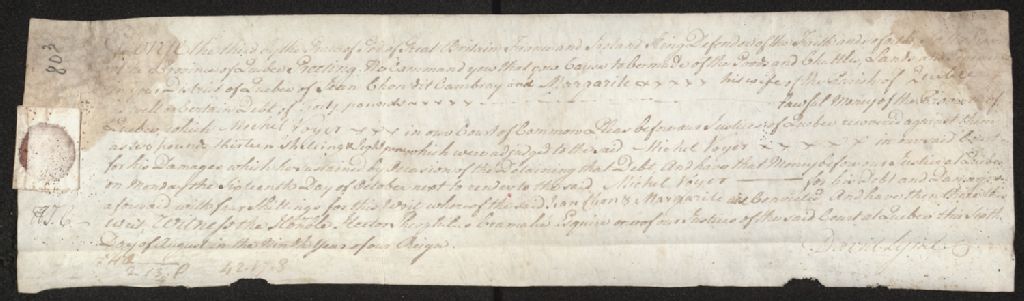 803
George the third by the Grace of God of Great Britain France and Ireland King Defender of the Faith and so forth
of the Province of Quebec Greeting. We Command you that you Cause to be made of the Goods and Chattles, Lands and
in your District of Quebec of Jean Chon dit Cambray and Margarite x x x x x his wife of the Parish of
as well a Certain debt of forty pounds x x x x x lawful Money of the Province of
Quebec which Michel Voyer x x x in our Court of Common Pleas before our Justices of Quebec recovered against them
as two pounds thirteen Shillings & Eight pence which were adjudged to the said Michel Voyer x x x x x in our said Court
for his Damages which he sustained by Occasion of the Detaining that Debt. And have that Money before our Justices at Quebec
on Monday the Sixteenth Day of October next to render to the said Michel Voyer for his debt and Damages
aforesaid with four Shillings for this Writ whereof the said Jean Chon & Margarite are Convicted And have then there this
Writ. Witness the Honble. Hector Theophilus Cramahé Esquire one of our Justices of the said Court at Quebec this Sixth
Day of August in the Ninth Year of our Reign.
2.13.8 42.17.8